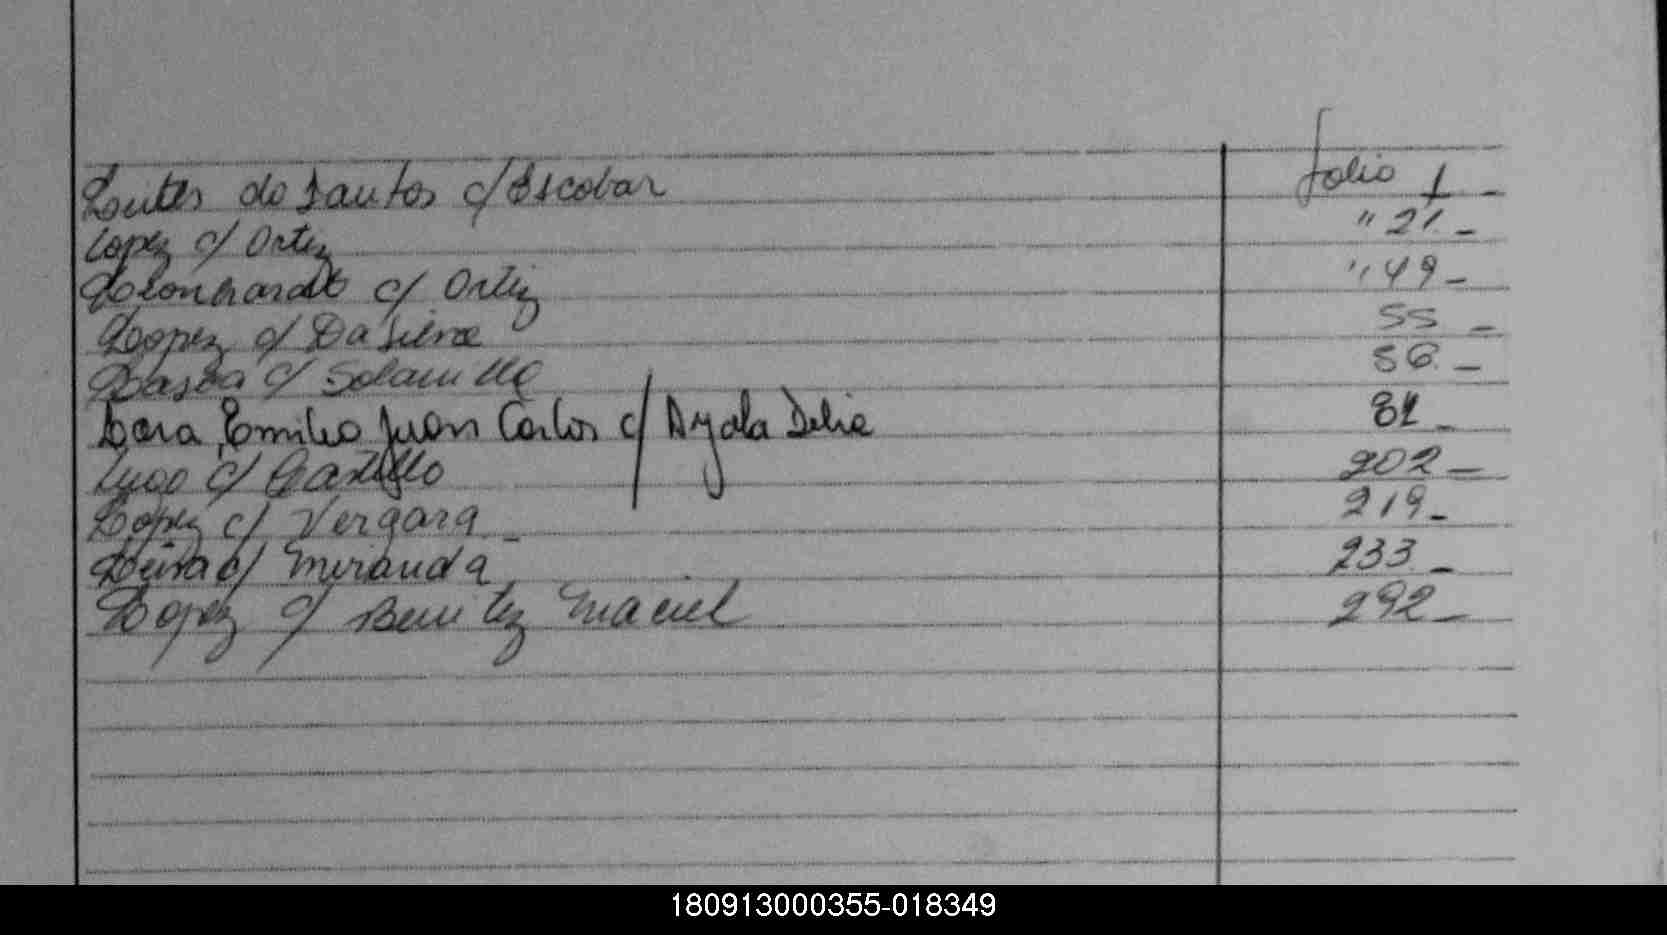 do Santos c/ Escobar folio 1 -
Lopez c/ Ortiz " 21. -
Leonhardt c/ Ortiz " 49 -
Lopez c/ Da Silva 55 -
c/ 56. -
Lara, Emilio Juan Carlos c/ Ayala Delia 81 -
Lugo c/ 202 -
Lopez c/ Vergara - 219 -
c/ Miranda 233 -
Lopez c/ Benitez Maciel 292 -
180913000355-018349